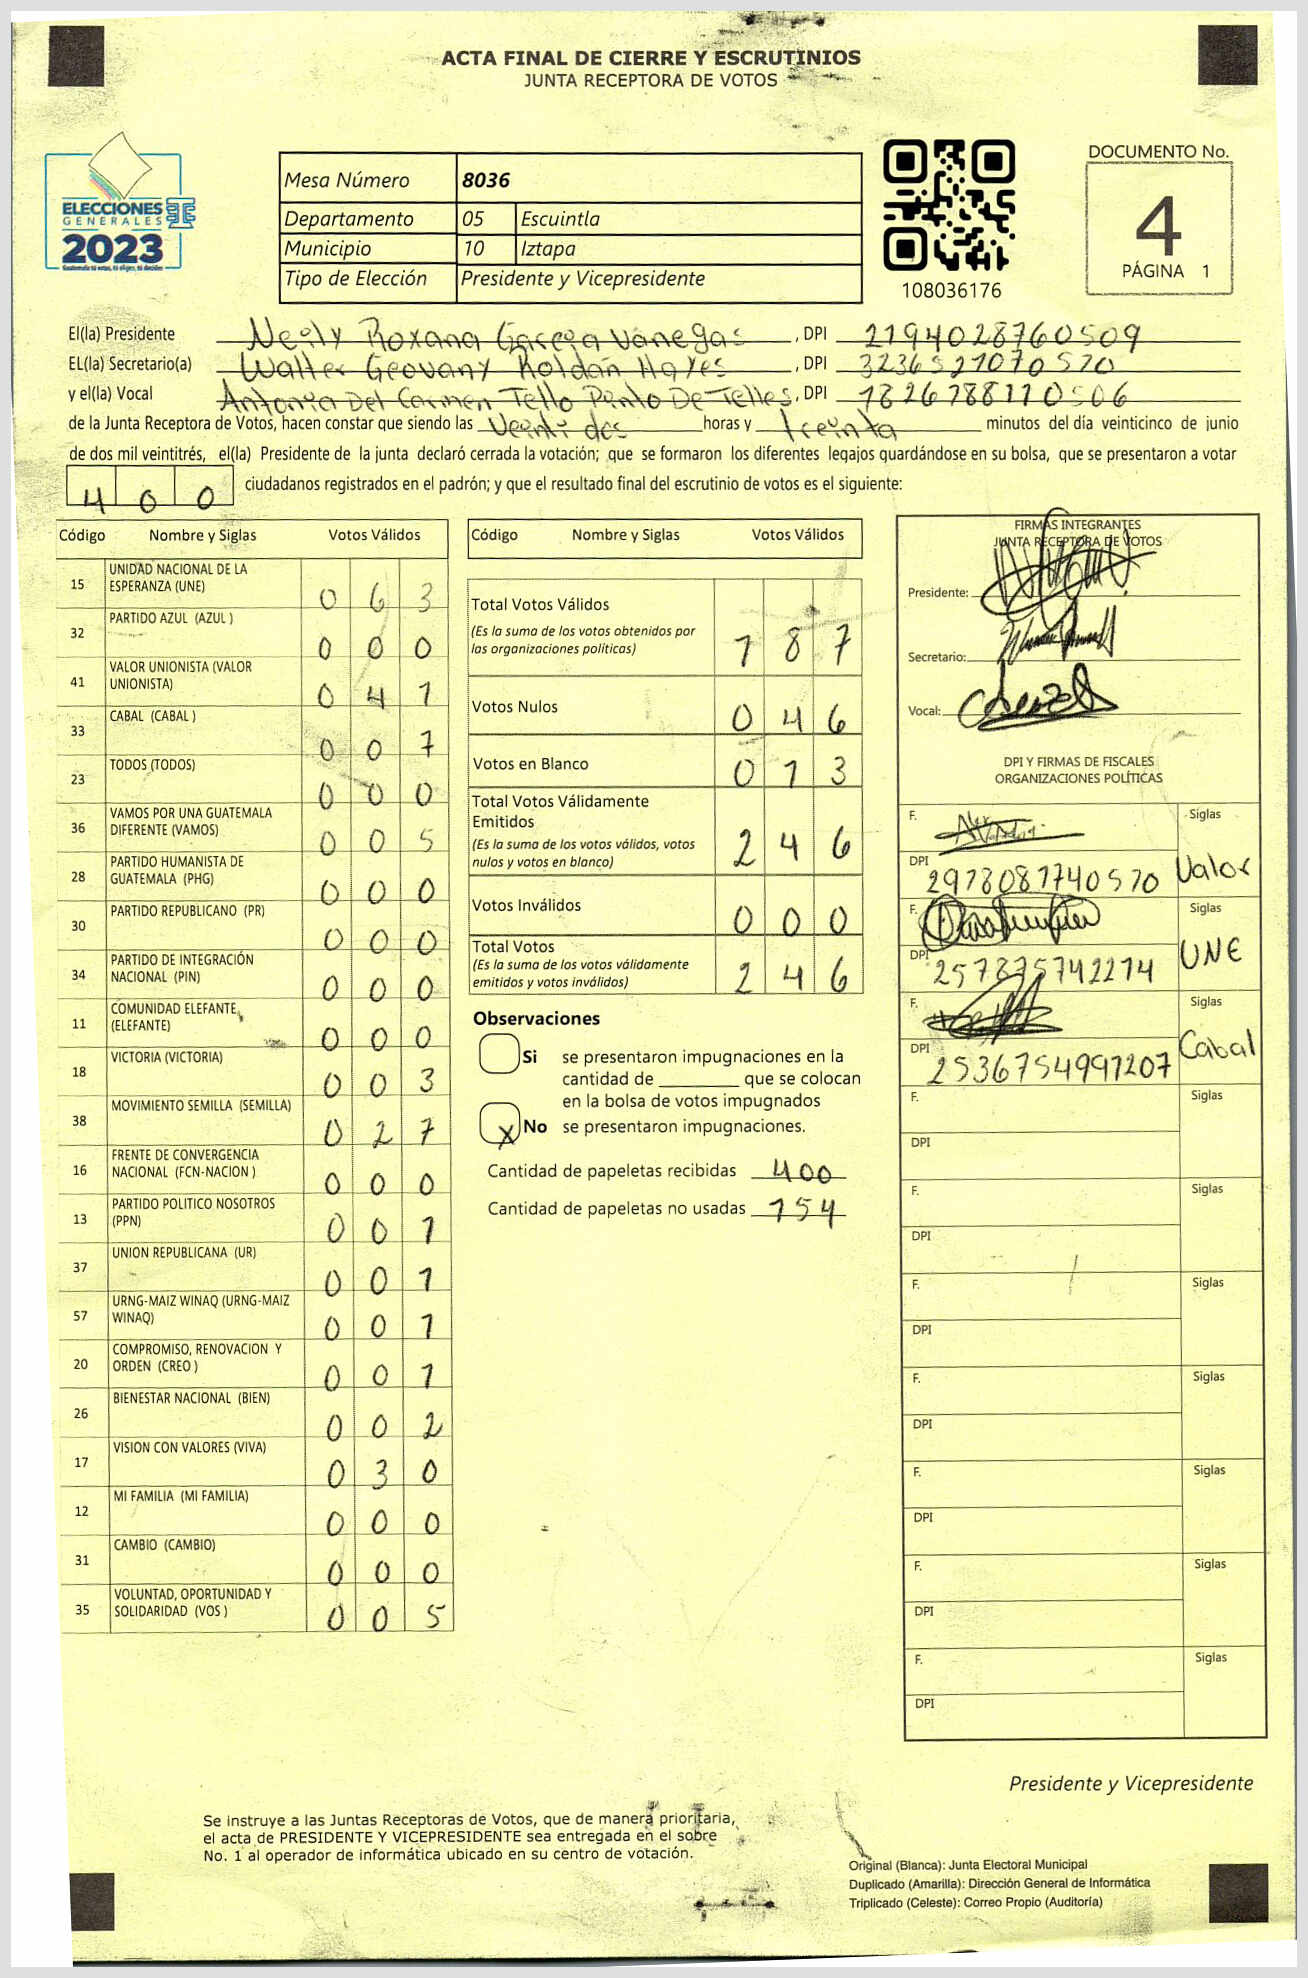 ACTA FINAL DE CIERRE Y ESCRUTINIOS
JUNTA RECEPTORA DE VOTOS
ELECCIONES
GENERALES
2023
Mesa Número 8036
Departamento 05 Escuintla
Municipio 10 Iztapa
Tipo de Elección Presidente y Vicepresidente
108036176
DOCUMENTO No.
4
PÁGINA 1
El(la) Presidente Roxana Garcia Vanegas, DPI 2194028760509
EL(la) Secretario(a) Walter Geovany Roldán, DPI 3236521070570
y el(la) Vocal Antonia Del Carmen Tello Pinto De Telles, DPI
de la Junta Receptora de Votos, hacen constar que siendo las Veinti dos horas y treinta minutos del día veinticinco de junio
de dos mil veintitrés, el(la) Presidente de la junta declaró cerrada la votación; que se formaron los diferentes legajos guardándose en su bolsa, que se presentaron a votar
400 ciudadanos registrados en el padrón; y que el resultado final del escrutinio de votos es el siguiente:
Código Nombre y Siglas Votos Válidos
15 UNIDAD NACIONAL DE LA
ESPERANZA (UNE) 0 6 3
32 PARTIDO AZUL (AZUL ) 0 0 0
41 VALOR UNIONISTA (VALOR
UNIONISTA) 0 4 1
33 CABAL (CABAL ) 0 0 7
23 TODOS (TODOS) 0 0 0
36 VAMOS POR UNA GUATEMALA
DIFERENTE (VAMOS) 0 0 5
28 PARTIDO HUMANISTA DE
GUATEMALA (PHG) 0 0 0
30 PARTIDO REPUBLICANO (PR) 0 0 0
34 PARTIDO DE INTEGRACIÓN
NACIONAL (PIN) 0 0 0
11 COMUNIDAD ELEFANTE
(ELEFANTE) 0 0 0
18 VICTORIA (VICTORIA) 0 0 3
38 MOVIMIENTO SEMILLA (SEMILLA) 0 2 7
16 FRENTE DE CONVERGENCIA
NACIONAL (FCN-NACION ) 0 0 0
13 PARTIDO POLITICO NOSOTROS
(PPN) 0 0 1
37 UNION REPUBLICANA (UR) 0 0 1
57 URNG-MAIZ WINAQ (URNG-MAIZ
WINAQ) 0 0 1
20 COMPROMISO, RENOVACION Y
ORDEN (CREO ) 0 0 1
26 BIENESTAR NACIONAL (BIEN) 0 0 2
17 VISION CON VALORES (VIVA) 0 3 0
12 MI FAMILIA (MI FAMILIA) 0 0 0
31 CAMBIO (CAMBIO) 0 0 0
35 VOLUNTAD, OPORTUNIDAD Y
SOLIDARIDAD (VOS ) 0 0 5
Código Nombre y Siglas Votos Válidos
Total Votos Válidos
(Es la suma de los votos obtenidos por
las organizaciones politicas) 1 8 7
Votos Nulos 0 4 6
Votos en Blanco 0 1 3
Total Votos Válidamente
Emitidos
(Es la suma de los votos válidos, votos
nulos y votos en blanco) 2 4 6
Votos Inválidos 0 0 0
Total Votos
(Es la suma de los votos válidamente
emitidos y votos inválidos) 2 4 6
Observaciones
Si se presentaron impugnaciones en la
cantidad de ________ que se colocan
en la bolsa de votos impugnados
X No se presentaron impugnaciones.
Cantidad de papeletas recibidas 400
Cantidad de papeletas no usadas 154
FIRMAS INTEGRANTES
JUNTA RECEPTORA DE VOTOS
Presidente:
Secretario:
Vocal:
DPI Y FIRMAS DE FISCALES
ORGANIZACIONES POLÍTICAS
F. Siglas
DPI 2978087740570 Valor
F. Siglas
DPI UNE
F. Siglas
DPI 2536754991207 Cabal
F. Siglas
DPI
F. Siglas
DPI
F. Siglas
DPI
F. Siglas
DPI
F. Siglas
DPI
F. Siglas
DPI
F. Siglas
DPI
Presidente y Vicepresidente
Se instruye a las Juntas Receptoras de Votos, que de manera prioritaria,
el acta de PRESIDENTE Y VICEPRESIDENTE sea entregada en el sobre
No. 1 al operador de informática ubicado en su centro de votación.
Original (Blanca): Junta Electoral Municipal
Duplicado (Amarilla): Dirección General de Informática
Triplicado (Celeste): Correo Propio (Auditoría)